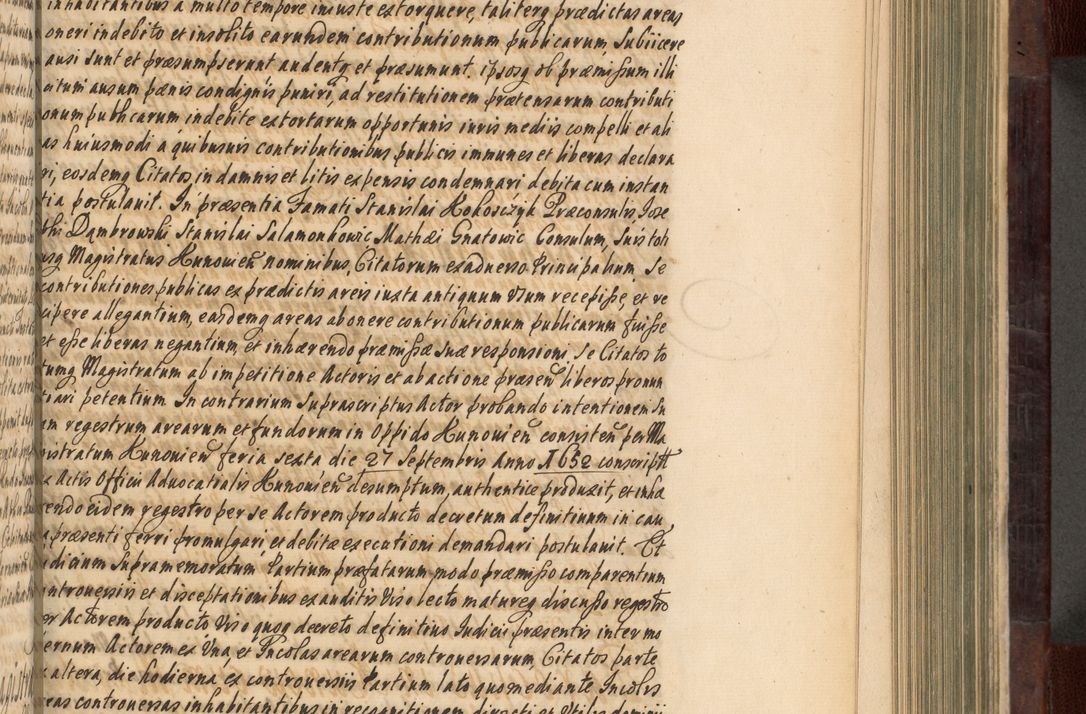 inhabitantibus a multo tempore iniuste extorquere, taliterq prædictas areas
oneri indebito et insolito earundem contributionum publicarum Subiicere
ausi sunt et præsumpserunt audentq et præsumunt. ipsosq ob præmissum illi
citum ausum pænis condignis puniri, ad restitutionem prætensarum contributi
onum publicarum indebite extortarum opportunis iuris mediis compelli et ali
as huiusmodi á quibusuis contributionibus publicis immunes et liberas declara
ri, eosdemq Citatos in damnis et litis expensis condemnari debita cum instan
tia postulauit. In præsentia Famati Stanislai Kokosczyk Præconsulis Jose
phi Dąmbrowski Stanislai Salamonkowic Mathæi Gnatowic Consulum, Suis toti
usq Magistratus Kunouien nominibus, Citatorum ex aduerso Principalium Se
contributiones publicas ex prædictis areis iuxta antiquum Vsum recepisse, et re
cipere allegantium, easdemq areas ab onere contributionum publicarum fuisse
et esse liberas negantium, et inhærendo præmissæ suæ responsioni, Se Citatos to
tumq Magistratum ab impetitione Actoris et ab actione præsen liberos pronun
tiari petentium. In contrarium Suprascriptus Actor probando intentionem Su
am regestrum arearum et fundorum in Oppido Kunouien consisten per Ma
gistratum Kunouien feria sexta die 27 Septembris Anno 1652 conscriptt
ex Actis Officii Aduocatialis Kunouien desumptum, authentice produxit, et inhæ
rendo eidem regestro per se Actorem producto decretum definitiuum in cau
a præsenti ferri promulgari et debitæ executioni demandari postulauit. Et
udicium Supramemoratum Partium præfatarum modo præmisso comparentium
ontrouersiis et disceptationibus exauditis Viso lecto matureq discusso regestro
per Actorem producto Viso quoq decreto definitiuo Iudicii præsentis inter mo
ernum Actorem ex Vna, et Incolas arearum controuersarum, Citatos parte
x altera, die hodierna ex controuersiis Partium lato quo mediante Incolis
reas controuersas inhabitantibus in recognitionem directi et Vtilis dominii